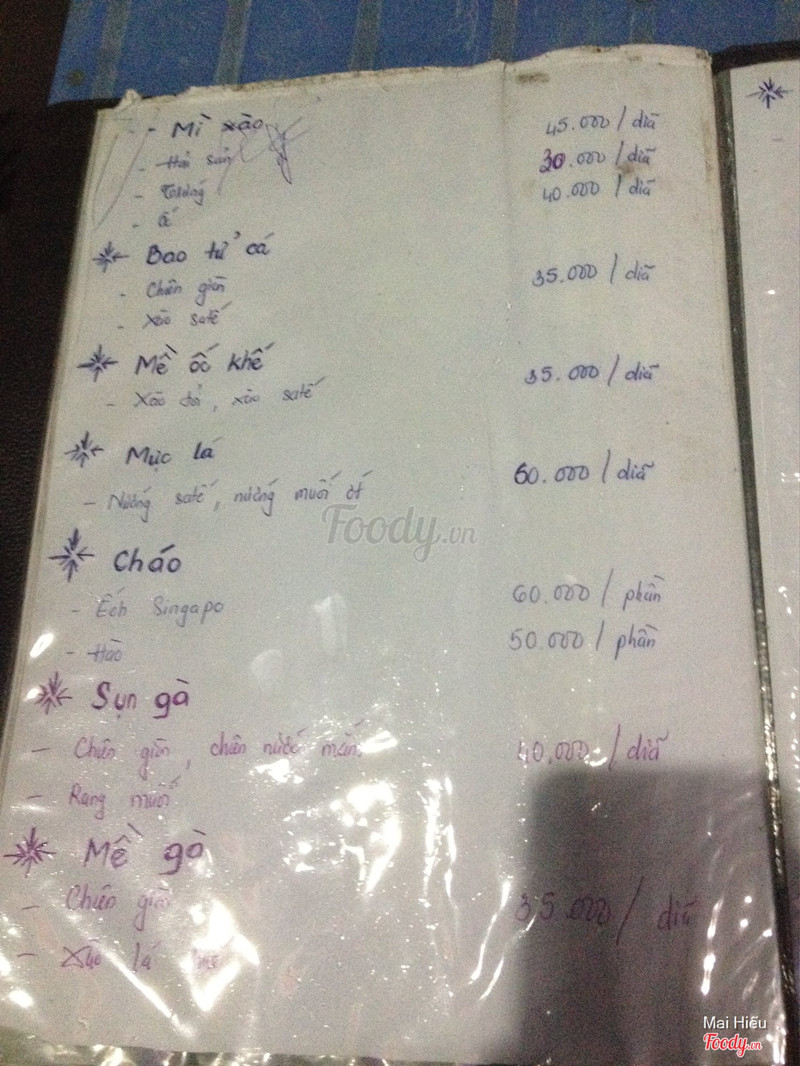 - Mì xào 45.000 / diã
- Hải sản 30.000 / diã
- Trứng 40.000 / diã
- Ốc
Bao tử cá
- Chiên giòn 35.000 / diã
- Xào satế
Mề ốc khế 35.000 / diã
- Xào tỏi, xào satế
Mực lá 60.000 / diã
- Nướng satế, nướng muối ớt
Foody.vn
Cháo
- Ếch Singapo 60.000 / phần
- Hào 50.000 / phần
Sụn gà
- Chiên giòn, chiên nước mắm. 40.000 / diã
- Rang muối
Mề gà
- Chiên giòn 35.000 / diã
- Xào lá
Mai Hiếu
Foody.vn